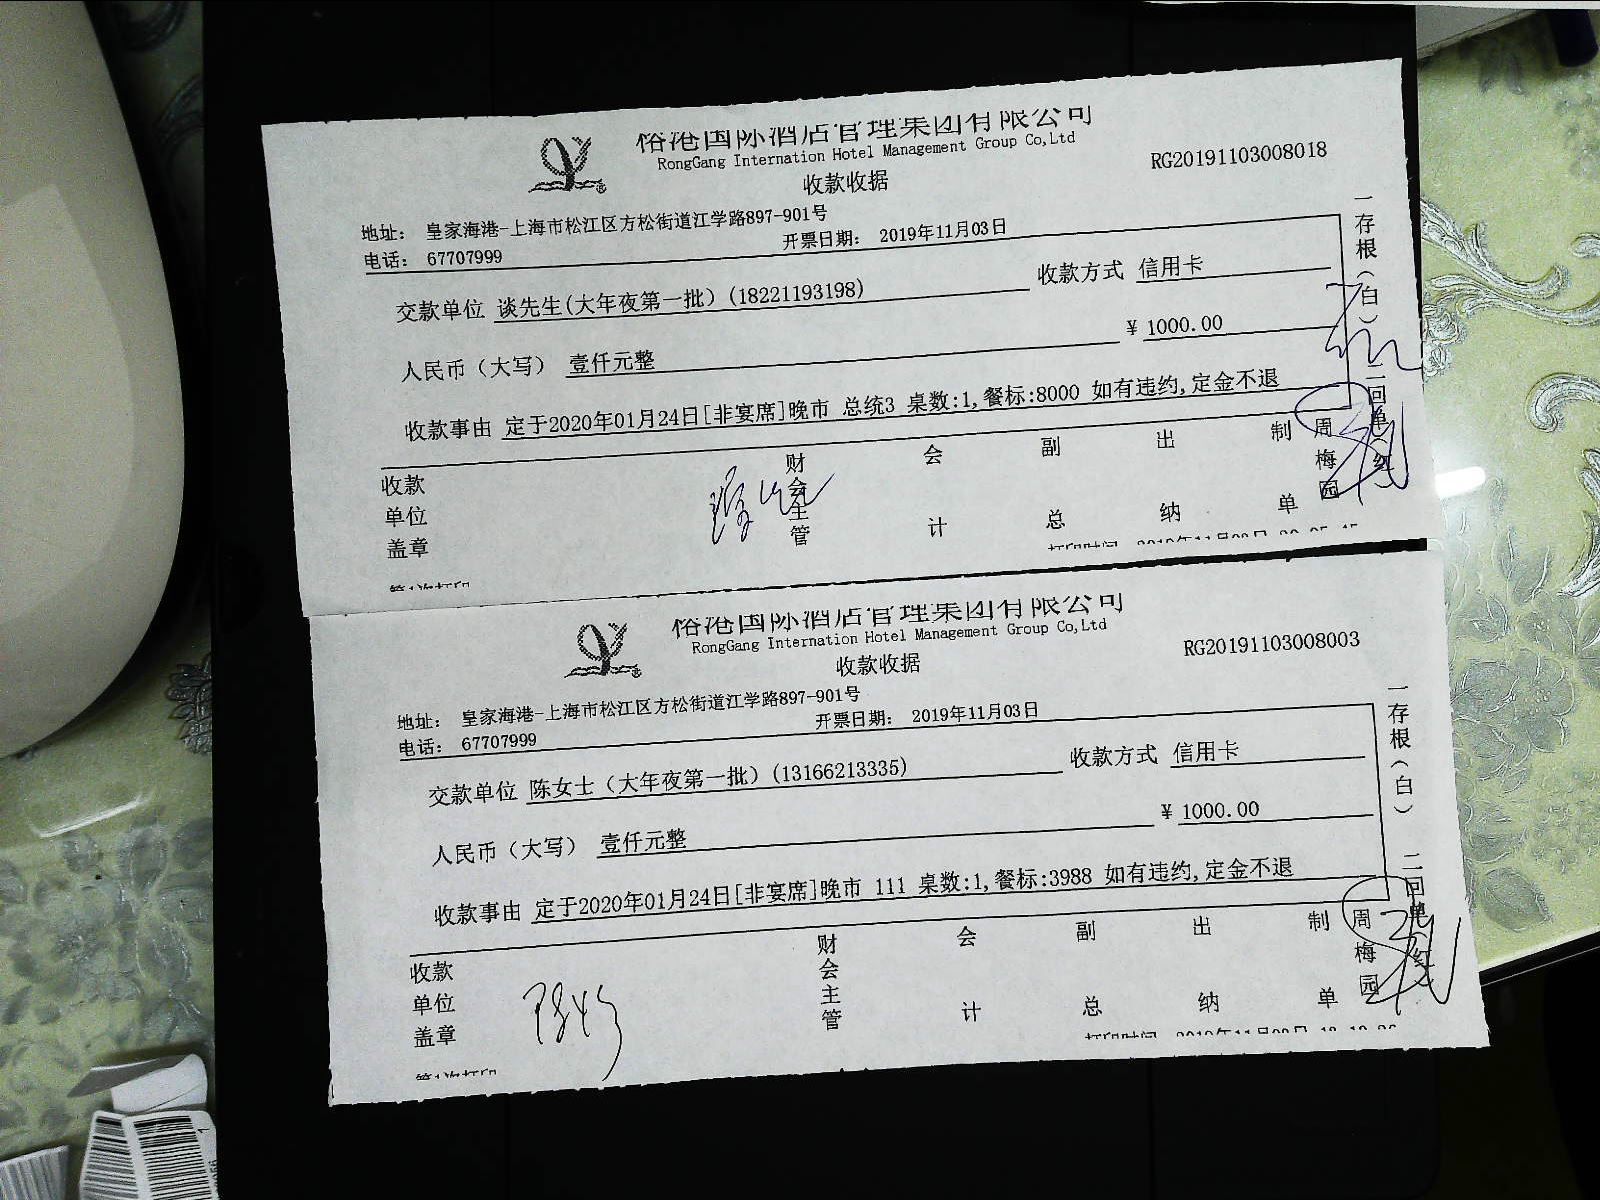 俗港国际酒店管理集团有限公司
RongGang Internation Hotel Management Group Co,Ltd
收款收据
RG20191103008018
地址： 皇家海港-上海市松江区方松街道江学路897-901号
电话： 67707999
开票日期： 2019年11月03日
交款单位 谈先生(大年夜第一批）(18221193198)
收款方式 信用卡
人民币（大写） 壹仟元整
¥ 1000.00
收款事由 定于2020年01月24日[非宴席]晚市 总统3 桌数:1,餐标:8000 如有违约,定金不退
收款单位盖章
财会主管
会计
副总
出纳
制单
周梅园
一存根（白） 二回单（红）
第1次打印
打印时间
俗港国际酒店管理集团有限公司
RongGang Internation Hotel Management Group Co,Ltd
收款收据
RG20191103008003
地址： 皇家海港-上海市松江区方松街道江学路897-901号
电话： 67707999
开票日期： 2019年11月03日
交款单位 陈女士（大年夜第一批）(13166213335)
收款方式 信用卡
人民币（大写） 壹仟元整
¥ 1000.00
收款事由 定于2020年01月24日[非宴席]晚市 111 桌数:1,餐标:3988 如有违约,定金不退
收款单位盖章
财会主管
会计
副总
出纳
制单
周梅园
一存根（白） 二回单（红）
第1次打印
打印时间